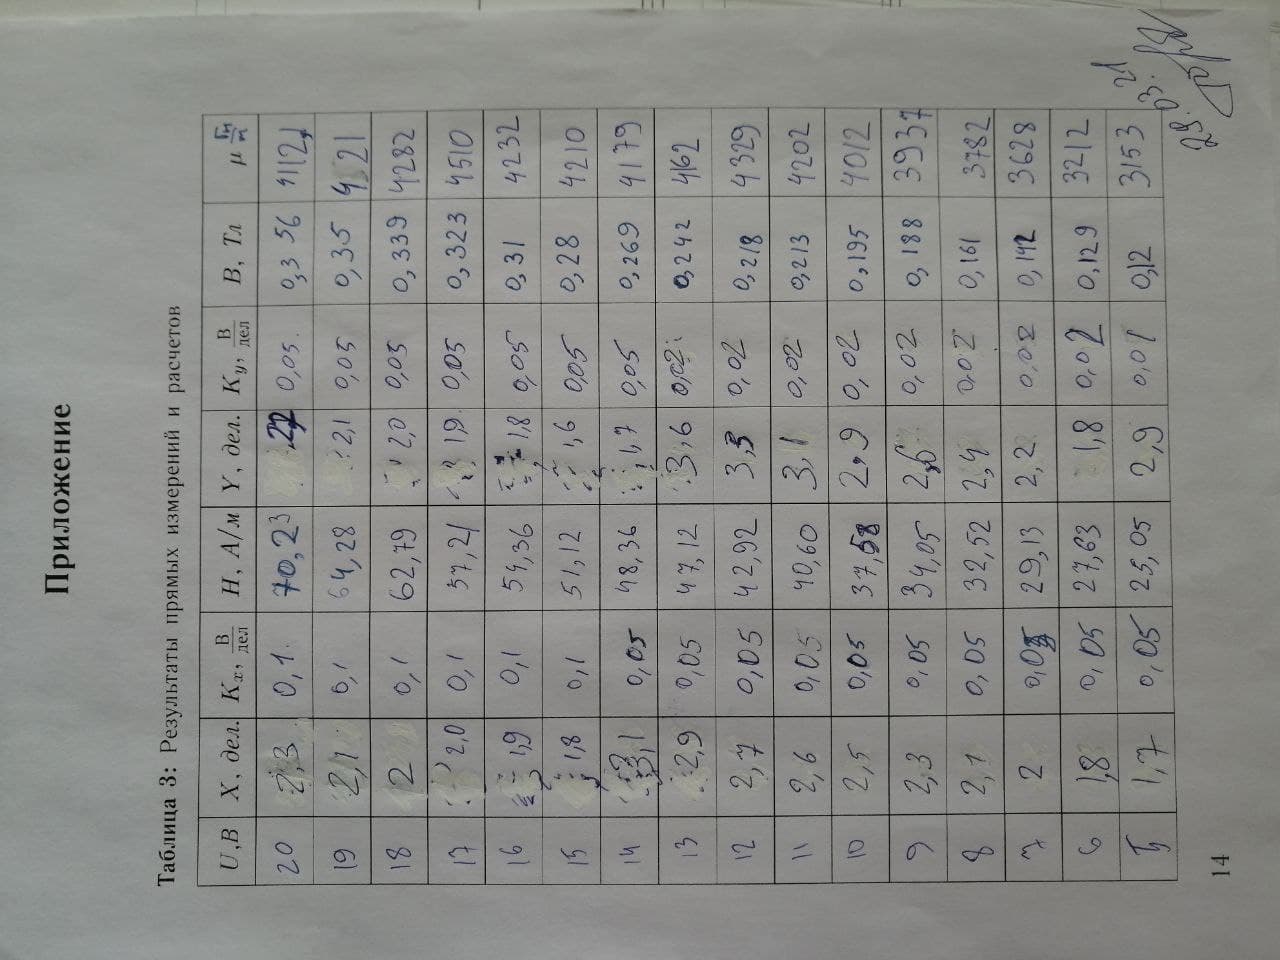 Приложение
Таблица 3: Результаты прямых измерений и расчетов
U,В X, дел. Kx, В/дел H, А/м Y, дел. Ky, В/дел B, Тл μ Гн/м
20 2,3 0,1 70,23 2,2 0,05 0,356 4112
19 2,1 0,1 64,28 2,1 0,05 0,35 4321
18 2 0,1 62,79 2,0 0,05 0,339 4282
17 2,0 0,1 57,21 1,9 0,05 0,323 4510
16 1,9 0,1 54,36 1,8 0,05 0,31 4232
15 1,8 0,1 51,12 1,6 0,05 0,28 4210
14 3,1 0,05 48,36 1,7 0,05 0,269 4179
13 2,9 0,05 47,12 3,6 0,02 0,242 4162
12 2,7 0,05 42,92 3,3 0,02 0,218 4329
11 2,6 0,05 40,60 3,1 0,02 0,213 4202
10 2,5 0,05 37,58 2,9 0,02 0,195 4012
9 2,3 0,05 34,05 2,6 0,02 0,188 3937
8 2,1 0,05 32,52 2,4 0,02 0,161 3782
7 2 0,05 29,13 2,2 0,02 0,142 3628
6 1,8 0,05 27,63 1,8 0,02 0,129 3212
5 1,7 0,05 25,05 2,9 0,01 0,12 3153
29.03.21
14